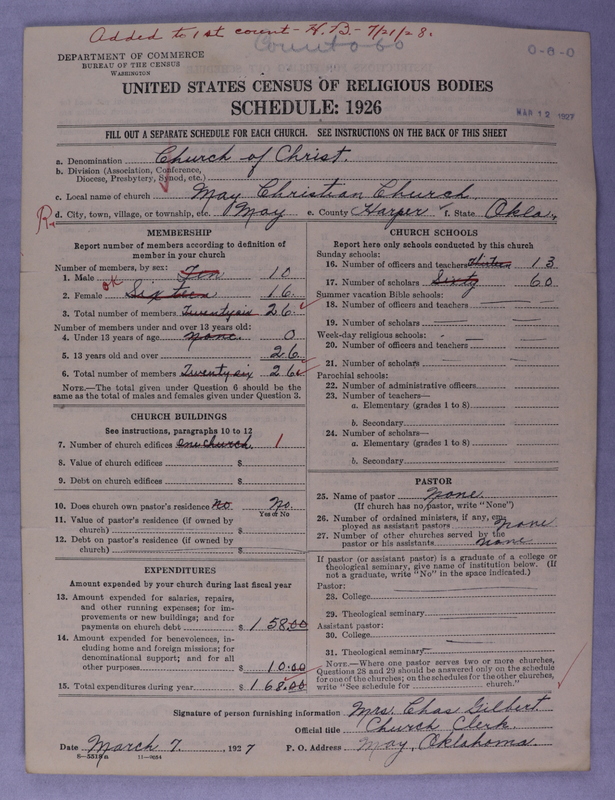 Added to 1st count - H.B. - 7/21/28.
Count 060
0-8-0
DEPARTMENT OF COMMERCE
BUREAU OF THE CENSUS
WASHINGTON
UNITED STATES CENSUS OF RELIGIOUS BODIES
SCHEDULE: 1926
MAR 12 1927
FILL OUT A SEPARATE SCHEDULE FOR EACH CHURCH. SEE INSTRUCTIONS ON THE BACK OF THIS SHEET
a. Denomination Church of Christ.
b. Division (Association, Conference, Diocese, Presbytery, Synod, etc.)
c. Local name of church May Christian Church
R. d. City, town, village, or township, etc. May e. County Harper f. State Okla.
MEMBERSHIP
Report number of members according to definition of member in your church
Number of members, by sex:
1. Male Ten 10
ok
2. Female Sixteen 16
3. Total number of members Twentysix 26
Number of members under and over 13 years old:
4. Under 13 years of age none. 0
5. 13 years old and over 26
6. Total number of members Twentysix 26
NOTE.—The total given under Question 6 should be the same as the total of males and females given under Question 3.
CHURCH BUILDINGS
See instructions, paragraphs 10 to 12
7. Number of church edifices one church. 1
8. Value of church edifices $
9. Debt on church edifices $
10. Does church own pastor's residence no No.
Yes or No
11. Value of pastor's residence (if owned by church) $
12. Debt on pastor's residence (if owned by church) $
EXPENDITURES
Amount expended by your church during last fiscal year
13. Amount expended for salaries, repairs, and other running expenses; for improvements or new buildings; and for payments on church debt $ 158.00
14. Amount expended for benevolences, including home and foreign missions; for denominational support; and for all other purposes $ 10.00
15. Total expenditures during year $ 168.00
CHURCH SCHOOLS
Report here only schools conducted by this church
Sunday schools:
16. Number of officers and teachers thirteen 13
17. Number of scholars Sixty 60
Summer vacation Bible schools:
18. Number of officers and teachers
19. Number of scholars
Week-day religious schools:
20. Number of officers and teachers
21. Number of scholars
Parochial schools:
22. Number of administrative officers
23. Number of teachers—
a. Elementary (grades 1 to 8)
b. Secondary
24. Number of scholars—
a. Elementary (grades 1 to 8)
b. Secondary
PASTOR
25. Name of pastor none
(If church has no pastor, write "None")
26. Number of ordained ministers, if any, employed as assistant pastors none
27. Number of other churches served by the pastor or his assistants none
If pastor (or assistant pastor) is a graduate of a college or theological seminary, give name of institution below. (If not a graduate, write "No" in the space indicated.)
Pastor:
28. College
29. Theological seminary
Assistant pastor:
30. College
31. Theological seminary
NOTE.—Where one pastor serves two or more churches, Questions 28 and 29 should be answered only on the schedule for one of the churches; on the schedules for the other churches, write "See schedule for church."
Signature of person furnishing information Mrs. Chas Gilbert
Official title Church Clerk.
Date March 7, 1927 P. O. Address May, Oklahoma.
8-5518a 11-9084